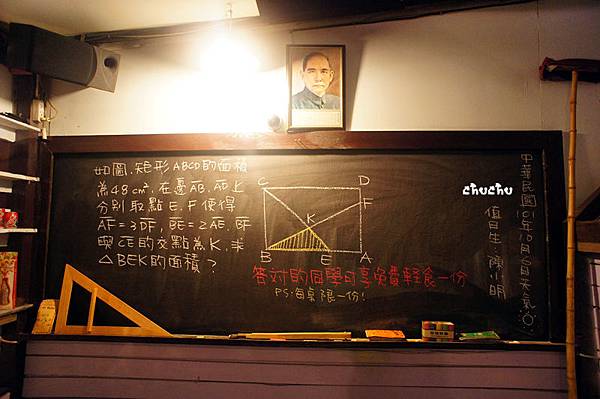 如圖,矩形ABCD的面積
為48cm²,在邊AB、AD上
分別取點E、F使得
AF=3DF,BE=2AE,BF
與CE的交點為K,求
△BEK的面積?
C
D
F
K
B
E
A
答對的同學可享免費輕食一份
PS:每桌限一份!
chuchu
中華民國101年10月6日天氣
值日生:陳小明